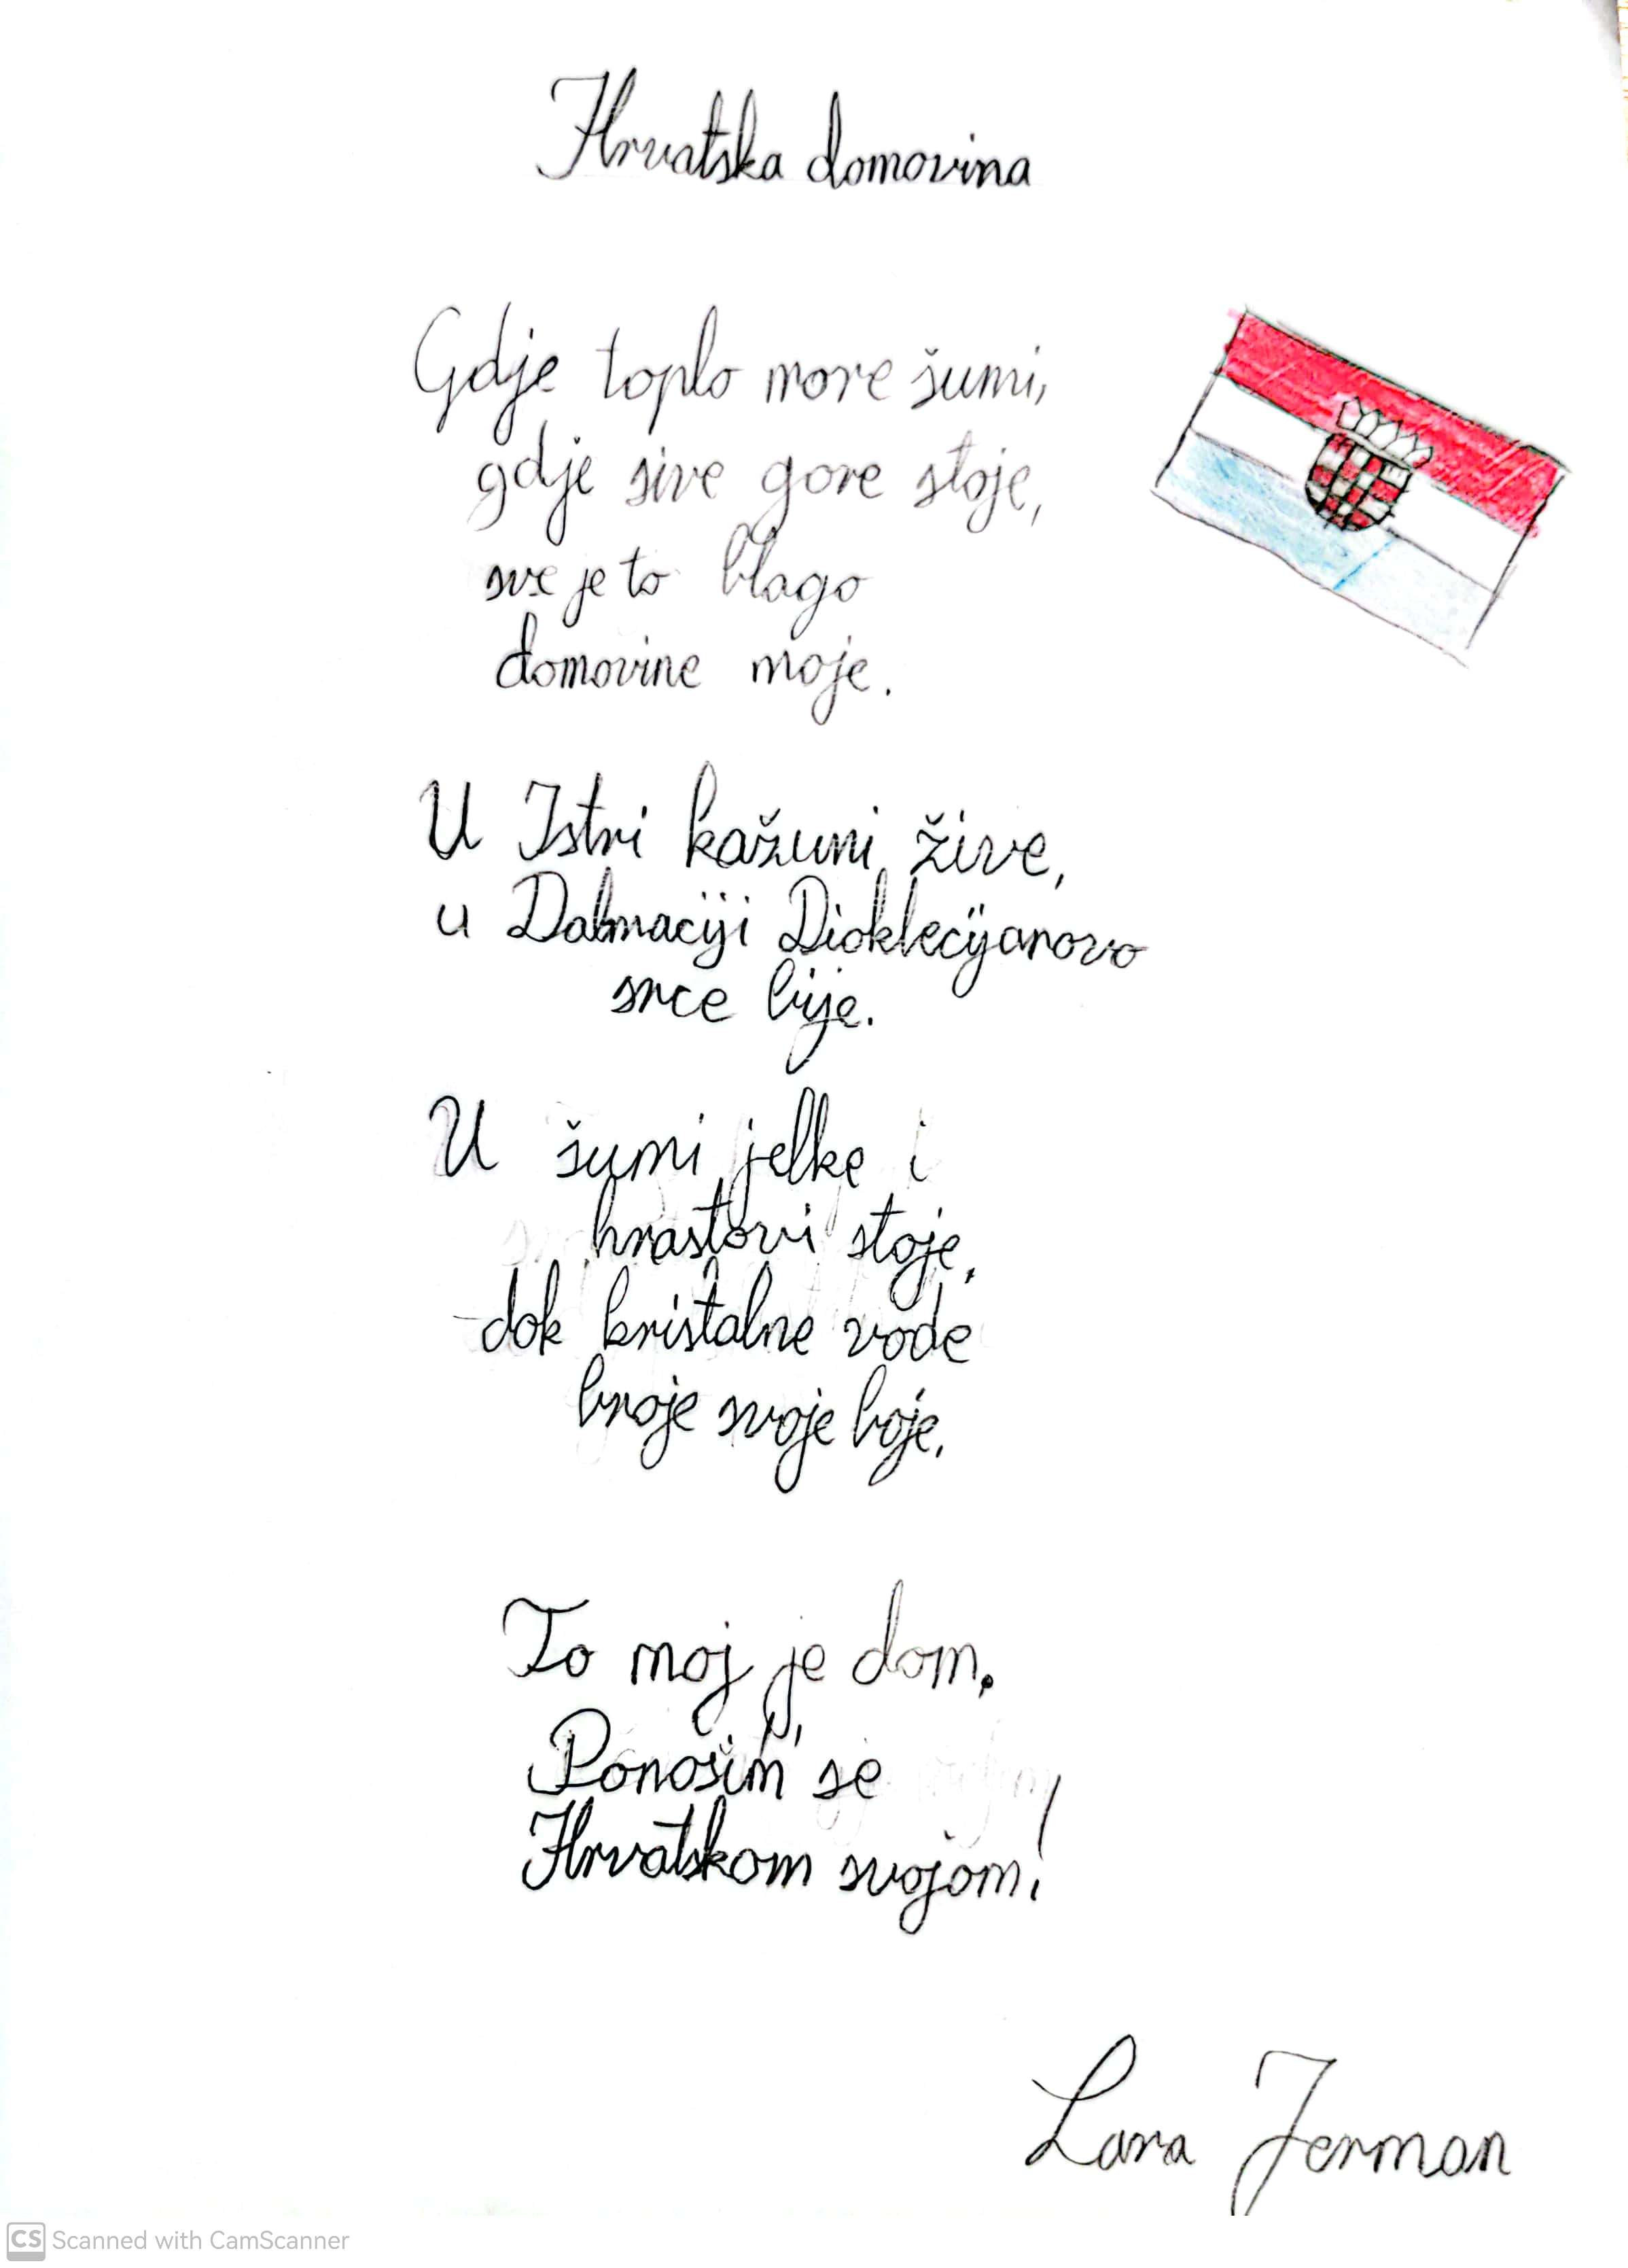 Hrvatska domovina
Gdje toplo more šumi,
gdje sive gore stoje,
sve je to blago
domovine moje.
U Istri kažuni žive,
u Dalmaciji Dioklecijanovo
srce bije.
U šumi jelke i
hrastovi stoje,
dok kristalne vode
broje svoje boje.
To moj je dom.
Ponosim se
Hrvatskom svojom!
Lara Jerman
CS Scanned with CamScanner